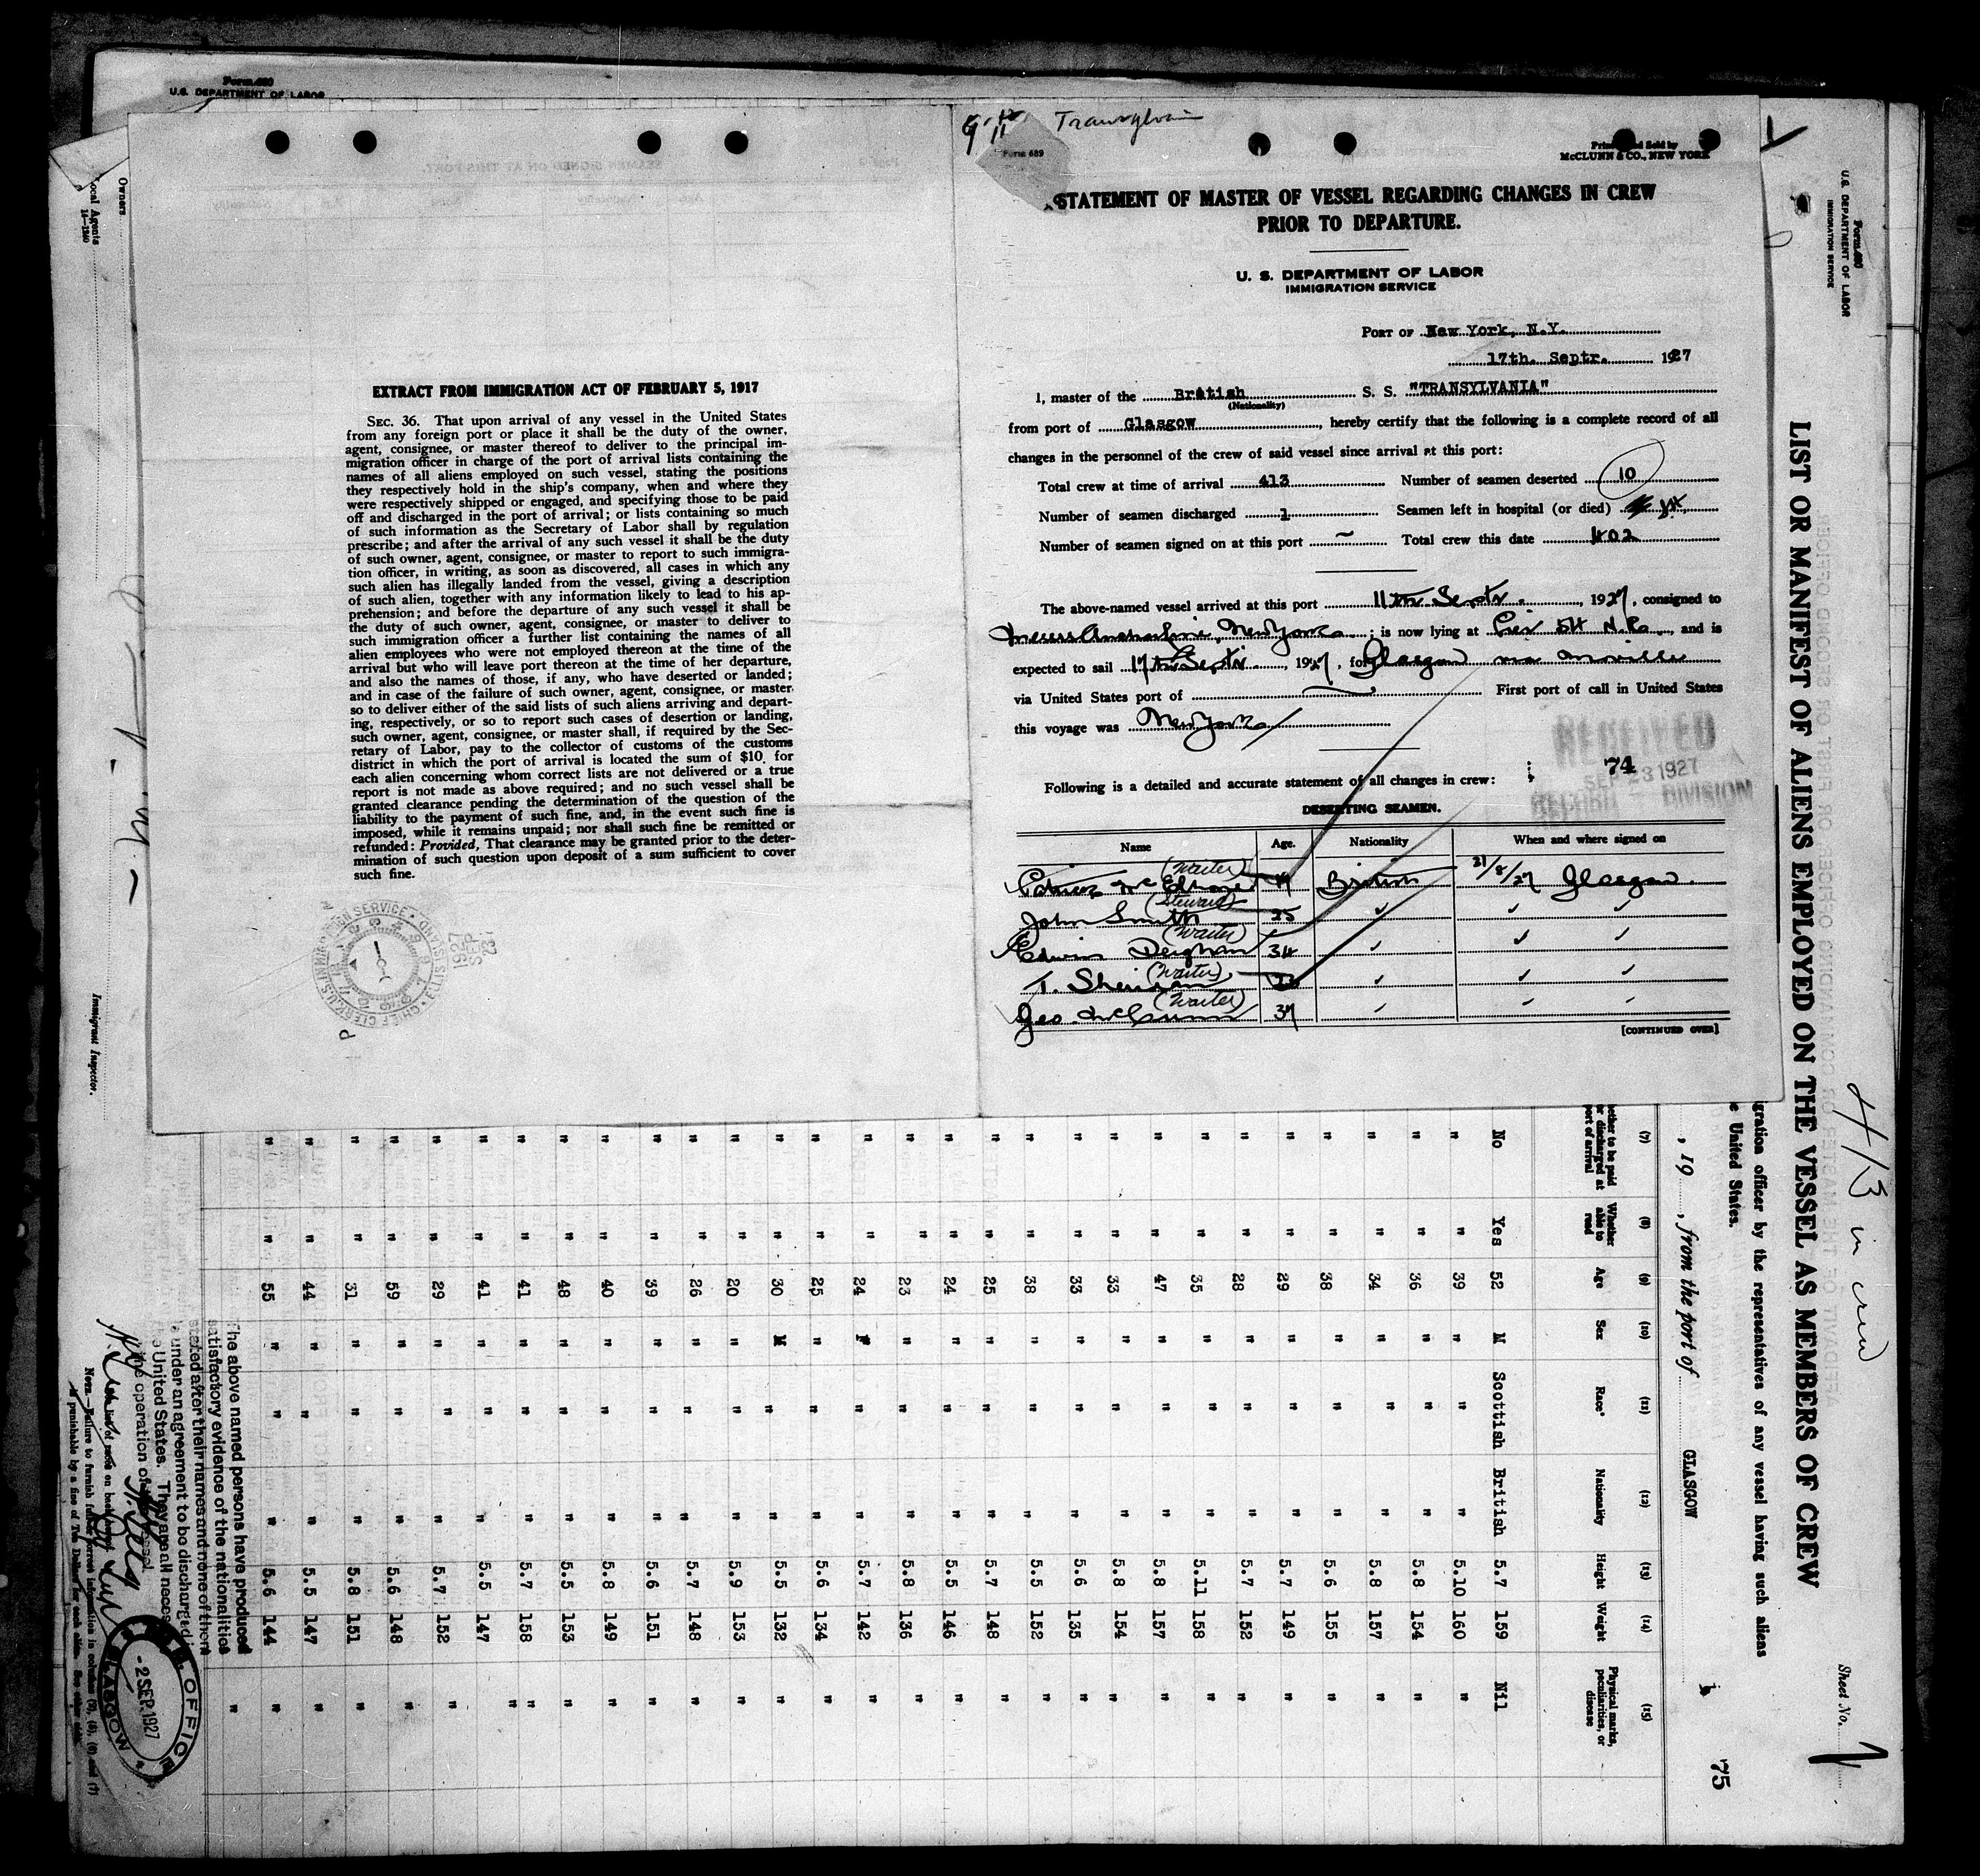 Form 680
U.S. DEPARTMENT OF LABOR
Owners
Local Agents
14—1240
Immigrant Inspector.
EXTRACT FROM IMMIGRATION ACT OF FEBRUARY 5, 1917
SEC. 36. That upon arrival of any vessel in the United States
from any foreign port or place it shall be the duty of the owner,
agent, consignee, or master thereof to deliver to the principal im-
migration officer in charge of the port of arrival lists containing the
names of all aliens employed on such vessel, stating the positions
they respectively hold in the ship's company, when and where they
were respectively shipped or engaged, and specifying those to be paid
off and discharged in the port of arrival; or lists containing so much
of such information as the Secretary of Labor shall by regulation
prescribe; and after the arrival of any such vessel it shall be the duty
of such owner, agent, consignee, or master to report to such immigra-
tion officer, in writing, as soon as discovered, all cases in which any
such alien has illegally landed from the vessel, giving a description
of such alien, together with any information likely to lead to his ap-
prehension; and before the departure of any such vessel it shall be
the duty of such owner, agent, consignee, or master to deliver to
such immigration officer a further list containing the names of all
alien employees who were not employed thereon at the time of the
arrival but who will leave port thereon at the time of her departure,
and also the names of those, if any, who have deserted or landed;
and in case of the failure of such owner, agent, consignee, or master
so to deliver either of the said lists of such aliens arriving and depart-
ing, respectively, or so to report such cases of desertion or landing,
such owner, agent, consignee, or master shall, if required by the Sec-
retary of Labor, pay to the collector of customs of the customs
district in which the port of arrival is located the sum of $10 for
each alien concerning whom correct lists are not delivered or a true
report is not made as above required; and no such vessel shall be
granted clearance pending the determination of the question of the
liability to the payment of such fine, and, in the event such fine is
imposed, while it remains unpaid; nor shall such fine be remitted or
refunded: Provided, That clearance may be granted prior to the deter-
mination of such question upon deposit of a sum sufficient to cover
such fine.
Form 689
Printed and Sold by
McCLUNN & CO., NEW YORK
STATEMENT OF MASTER OF VESSEL REGARDING CHANGES IN CREW
PRIOR TO DEPARTURE.
U. S. DEPARTMENT OF LABOR
IMMIGRATION SERVICE
PORT OF New York, N.Y.
17th. Septr. 1927
I, master of the British S. S. "TRANSYLVANIA"
(Nationality)
from port of Glasgow, hereby certify that the following is a complete record of all
changes in the personnel of the crew of said vessel since arrival at this port:
Total crew at time of arrival 413 Number of seamen deserted 10
Number of seamen discharged 1 Seamen left in hospital (or died)
Number of seamen signed on at this port ~ Total crew this date 402
The above-named vessel arrived at this port 11th Septr. 1927, consigned to
Messrs Anchor Line, New York; is now lying at Pier 54 N.R., and is
expected to sail 17th Septr. 1927, for Glasgow via Moville
via United States port of First port of call in United States
this voyage was New York
RECEIVED
74
SEP 23 1927
RECORD DIVISION
Following is a detailed and accurate statement of all changes in crew:
DESERTING SEAMEN.
Name Age. Nationality When and where signed on
(Waiter) 19 British 21/8/27 Glasgow.
John Smith (Steward) 25 ✓ ✓ ✓
Edwin Deighan (Waiter) 34 ✓ ✓ ✓
T. Sheridan (Waiter) ✓ ✓ ✓
Geo. McGunn (Waiter) 37 ✓ ✓ ✓
[CONTINUED OVER]
Form 680
U. S. DEPARTMENT OF LABOR
IMMIGRATION SERVICE
413 in crew
Sheet No. 1
LIST OR MANIFEST OF ALIENS EMPLOYED ON THE VESSEL AS MEMBERS OF CREW
gration officer by the representatives of any vessel having such aliens
e United States.
, 19 , from the port of GLASGOW
75
(7) (8) (9) (10) (11) (12) (13) (14) (15)
hether to be paid or discharged at port of arrival
Whether able to read
Age
Sex
Race*
Nationality
Height
Weight
Physical marks, peculiarities, or disease
No Yes 52 M Scottish British 5.7 159 Nil
" " 39 " " " 5.10 160 "
" " 36 " " " 5.8 154 "
" " 34 " " " 5.8 157 "
" " 38 " " " 5.6 155 "
" " 29 " " " 5.7 149 "
" " 28 " " " 5.7 152 "
" " 35 " " " 5.11 158 "
" " 47 " " " 5.8 157 "
" " 33 " " " 5.8 154 "
" " 33 " " " 5.6 135 "
" " 38 " " " 5.5 152 "
" " 25 " " " 5.7 148 "
" " 24 " " " 5.5 146 "
" " 23 " " " 5.8 136 "
" " 24 F " " 5.7 142 "
" " 25 " " " 5.6 134 "
" " 30 M " " 5.5 132 "
" " 20 " " " 5.9 153 "
" " 26 " " " 5.7 148 "
" " 39 " " " 5.6 151 "
" " 40 " " " 5.8 149 "
" " 48 " " " 5.5 153 "
" " 41 " " " 5.7 158 "
" " 41 " " " 5.5 147 "
" " 29 " " " 5.7 152 "
" " 59 " " " 5.6 148 "
" " 31 " " " 5.8 151 "
" " 44 " " " 5.5 147 "
" " 55 " " " 5.6 144 "
The above named persons have produced
satisfactory evidence of the nationalities
stated after their names and none of them
is under an agreement to be discharged in
the United States. They are all necessary
the operation of vessel.
OFFICE
-2 SEP. 1927
GLASGOW